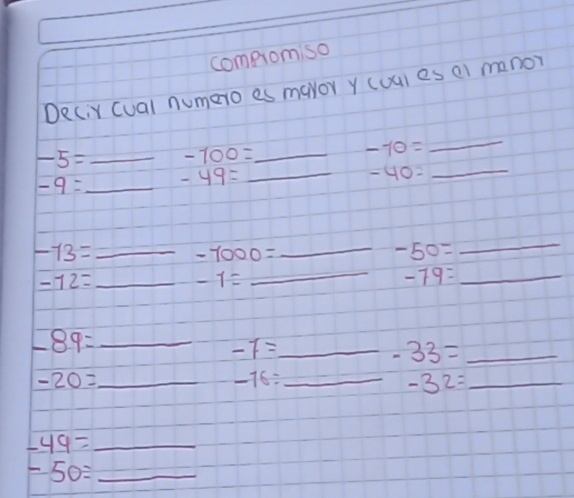 compromiso
Decir cual numero es mayor y cual es al menor
-5=____ -100=____ -10=____
-9=____ -49=____ -40=____
-13=____ -1000=____ -50=____
-12=____ -1=____ -19=____
-89=____ -7=____ -33=____
-20=____ -16=____ -32=____
-49=____
-50=____